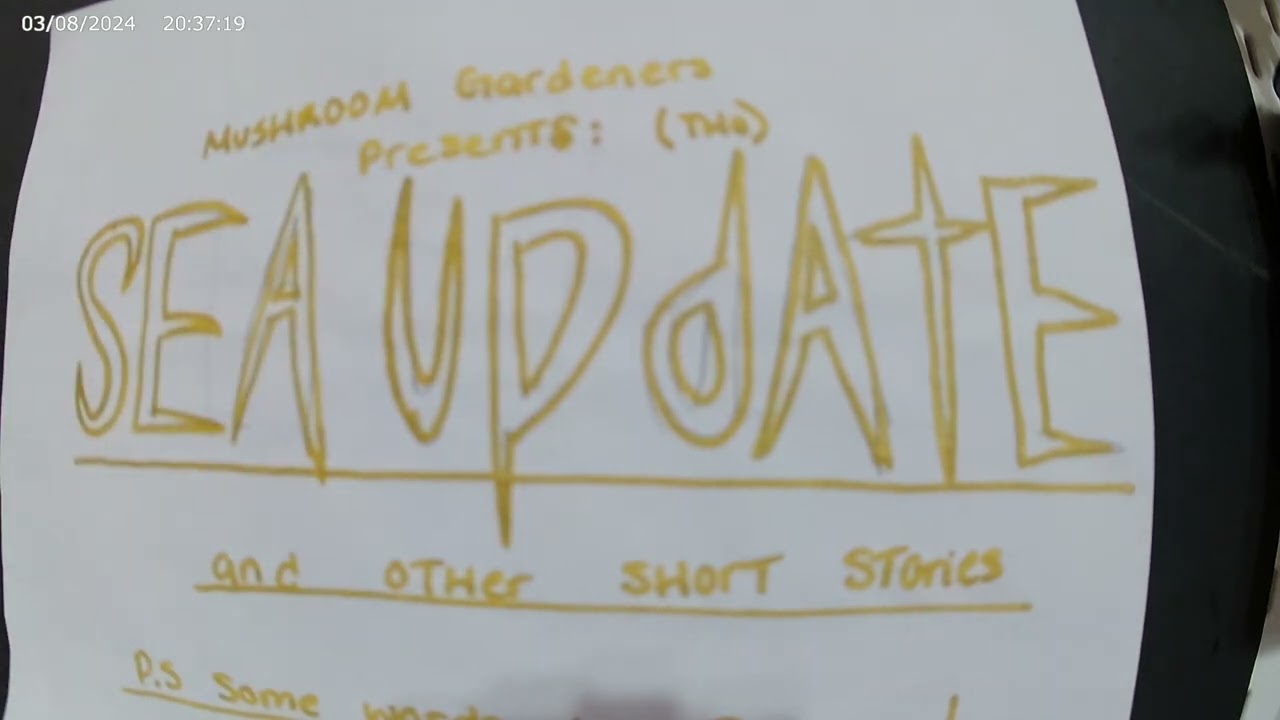 03/08/2024 20:37:19
MUSHROOM Gardeners
Presents: (THe)
SEA UPdAtE
and OTHer SHOrT STories
P.S Some words